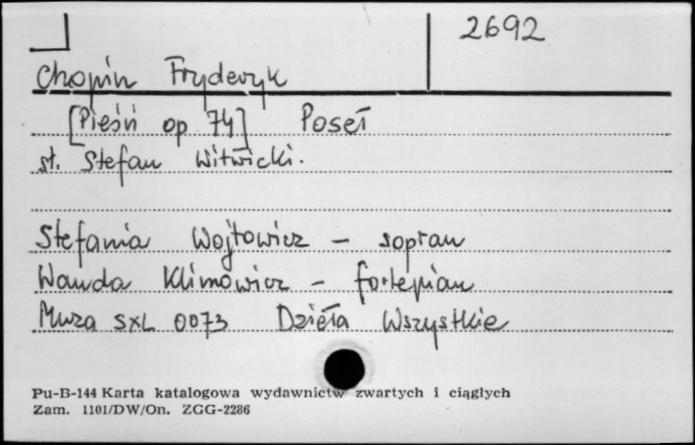 2692
Chopin Fryderyk
[Pieśń op 74] Poseł
sł. Stefan Witwicki.
Stefania Wojtowicz – sopran
Wanda Klimowicz – fortepian
Muza SXL 0073 Dzieła Wszystkie
Pu-B-144 Karta katalogowa wydawnictw zwartych i ciągłych
Zam. 1101/DW/On. ZGG-2286